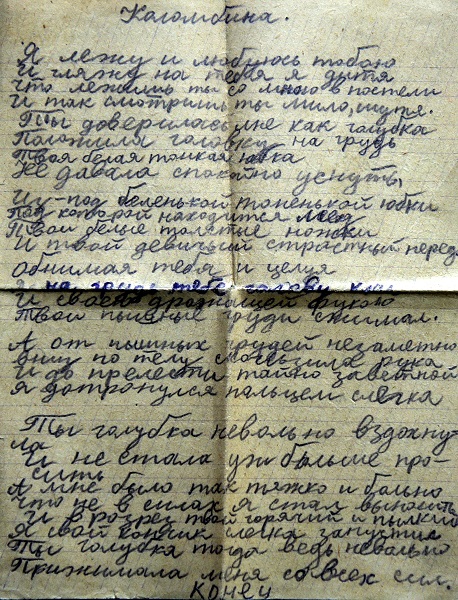 Каломбина.
Я лежу и любуюсь тобою
И гляжу на тебя я дитя
Что лежишь ты со мною в постели
И так смотришь ты мило, шутя.
Ты доверилась мне как голубка
Положила головку на грудь
Твоя белая тонкая юбка
Не давала спокойно уснуть,
Из-под беленькой тоненькой юбки
Под которой находится
Твои белые толстые ножки
И твой девичий страстный перед
обнимая тебя и целуя
И на грудь тебе голову
И своею дрожащей рукою
Твои пышные груди сжимал.
А от пышных грудей незаметно
вниз по телу скользила рука
И до прелести тайно заветной
Я дотронулся пальцем слегка
Ты голубка невольно вздохну-
ла
И не стала уж больше про-
сить
А мне было так тяжко и больно
что не в силах я стал выносить
И в разрез твой горячий и пылкий
Я свой кончик слегка запустил
Ты голубка тогда ведь невольно
Прижимала меня со всех сил.
Конец